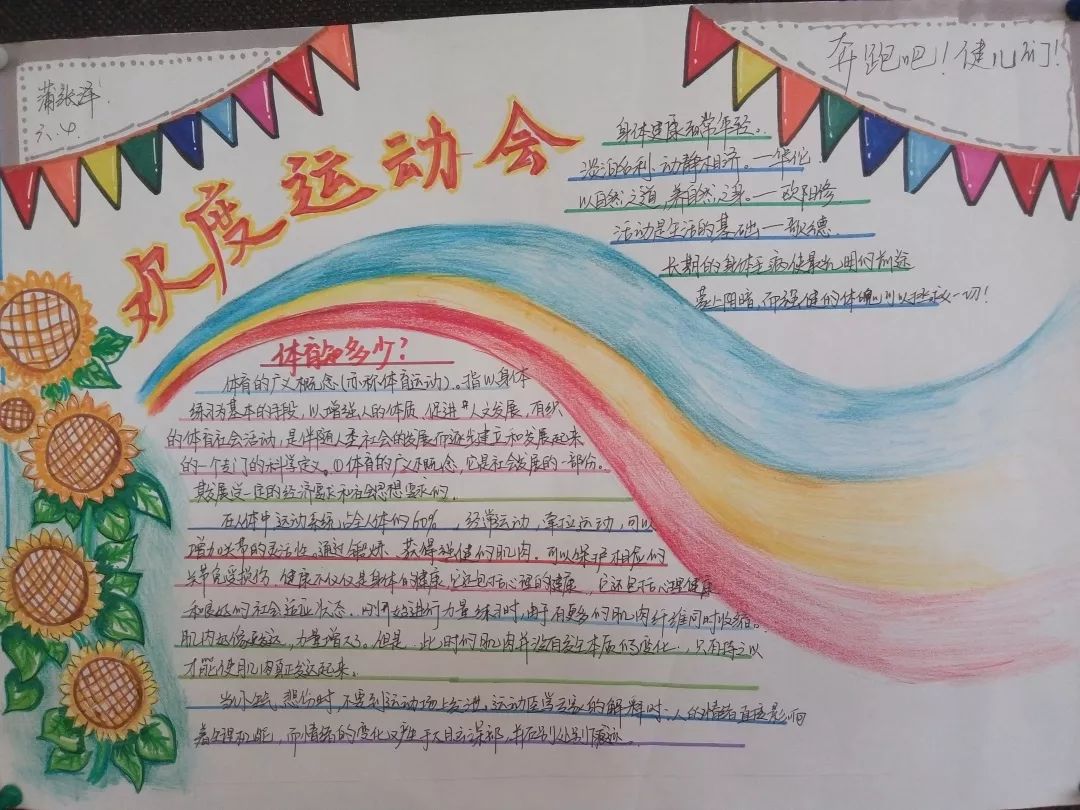 蒲张泽
六.4.
奔跑吧！健儿们！
欢度运动会
身体健康常年轻。
淡泊名利，动静相济。—华佗
以自然之道，养自然之身。—欧阳修
活动是生活的基础—歌德
长期的身体毛病使最光明的前途
蒙上阴暗，而强健的体魄可以拯救一切！
体育知多少？
体育的广义概念（亦称体育运动）。指以身体
练习为基本的手段，以增强人的体质，促进人文发展，有
的体育社会活动，是伴随人类社会的发展而逐步建立和发展起来
的一个专门的科学定义。①体育的广义概念，它是社会发展的一部份。
其发展受一定的经济要求和社会思想要求的。
在人体中，运动系统占全人体的60%，经常运动，拉运动，可以
增加关节的灵活性，通过锻炼，获得强健的肌肉，可以保护相应的
关节免受损伤，健康不仅仅是身体的健康，它还包括心理的健康，它还包括心理健康
和良好的社会适应状态。刚开始进行力量练习时，由于有更多的肌肉纤维同时收缩。
肌肉好像发达，力量增大了。但是，此时的肌肉并没有产生本质的变化，只有持之以
才能使肌肉真正发达起来。
当心生气，悲伤时，不要到运动场上发泄，运动医学专家的解释时，人的情绪直接影响
着生理机能，而情绪的变化又产生于大脑深部，并在别处别